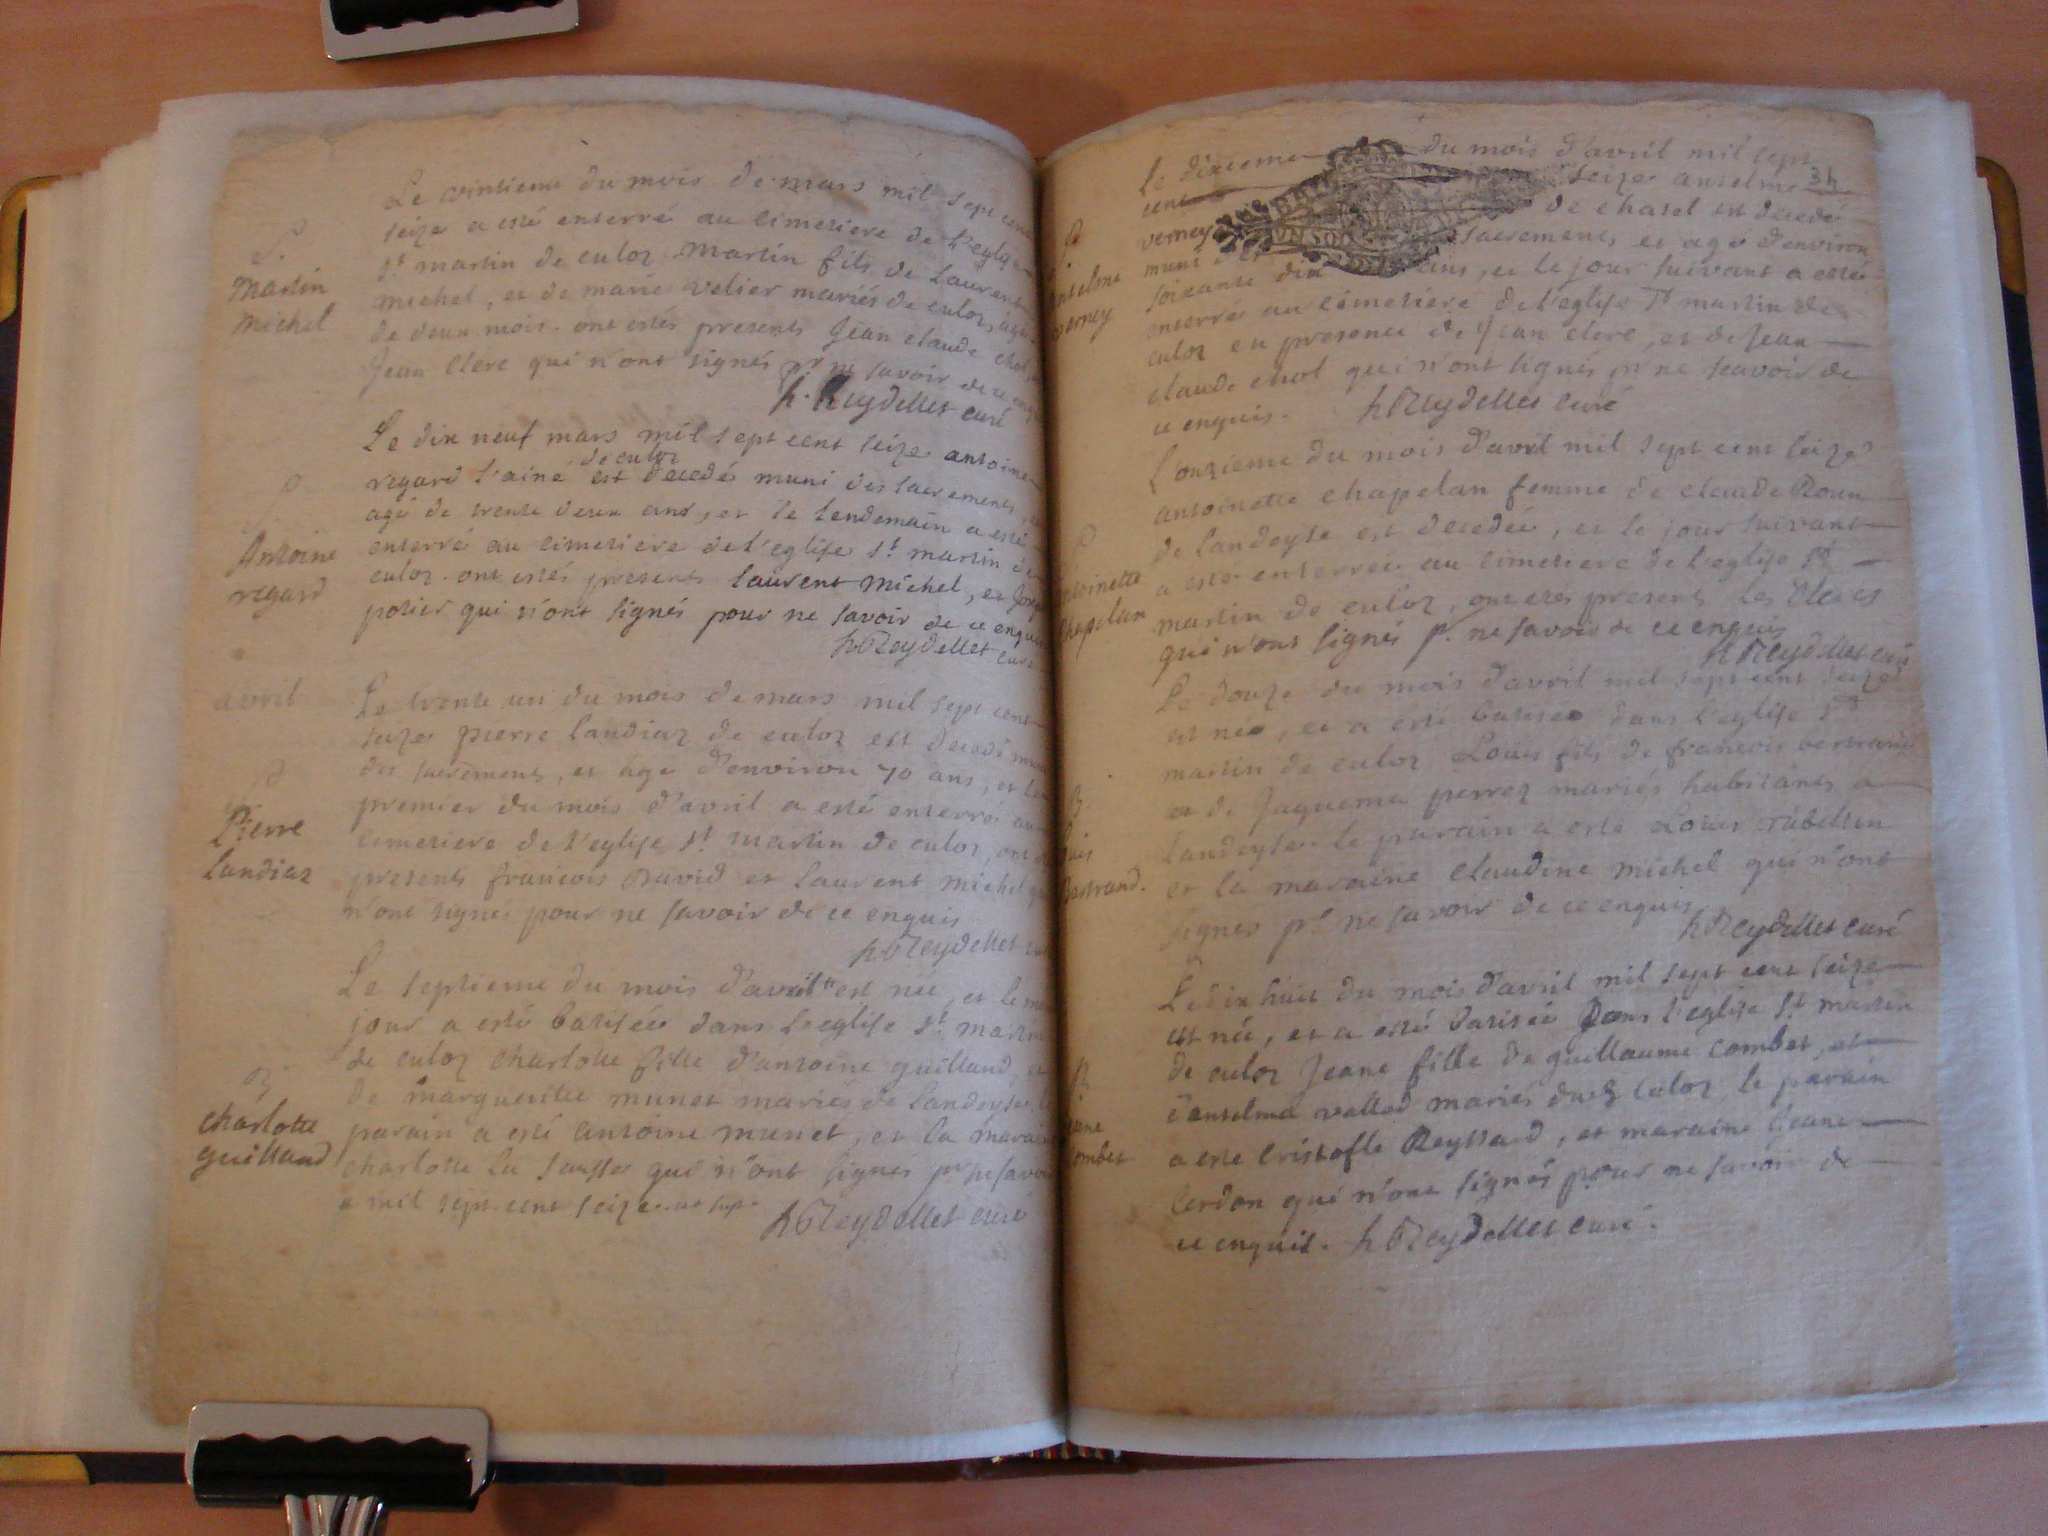 Le vintieme du mois de mars mil sept cent
seize a esté enterré au cimetiere de l'eglise
St martin de culoz martin fils de laurent
michel, et de marie velier mariés de culoz, agé
de deux mois. ont estés presents Jean claude chol, et
Jean clerc qui n'ont signés pr ne savoir de ce enquis
h. Reydellet curé
S.
martin
michel
Le dix neuf mars mil sept cent seize antoine
de culoz
regard l'ainé est decedés muni des sacrements, et
agé de trente deux ans, et le lendemain a esté
enterré au cimetiere de l'eglise St martin de
culoz. ont estés presents laurent michel, et
potier qui n'ont signés pour ne savoir de ce enquis
h Reydellet curé
S.
Antoine
regard
avril
Le trente un du mois de mars mil sept cent
seize pierre landiaz de culoz est decedé muni
des sacrements, et agé d'environ 70 ans, et le
premier du mois d'avril a esté enterré au
cimetiere de l'eglise St martin de culoz, ont
presents francois David et laurent michel qui
n'ont signés pour ne savoir de ce enquis
h Reydellet curé
S
Pierre
landiaz
Le septieme du mois d'avril est née, et le meme
jour a esté batisée dans l'eglise St martin
de culoz charlotte fille d'antoine guilland, et
de margueritte munet mariés de landeyse, le
parain a esté antoine munet, et la maraine
charlotte la qui n'ont signes pr ne savoir
mil sept cent seize
h Reydellet curé
B.
charlotte
guilland
Le dixieme du mois d'avril mil sept
34
cent seize anselme
verney de chatel est decedé
muni des sacrements, et agé d'environ
soixante dix ans, et le jour suivant a esté
enterré au cémetiere de l'eglise St martin de
culoz en presence de Jean clerc, et de Jean
claude chol qui n'ont signés pr ne scavoir de
ce enquis. h Reydellet curé
S.
anselme
verney
L'onzieme du mois d'avril mil sept cent seize
antoinette chapelan femme de claude Roun
de landeyse est decedée, et le jour suivant
a esté enterrée au cimetiere de l'eglise St
martin de culoz, ont etes presents les Clercs
qui n'ont signés p. ne savoir de ce enquis
h Reydellet curé
S
antoinette
chapelan
Le douze du mois d'avril mil sept cent seize
est né, et a esté batisé dans l'eglise St
martin de culoz Louis fils de francois bertrand
et de Jaquema perrez mariés habitants a
landeyse. le parain a esté Louis rubellin
et la maraine claudine michel qui n'ont
signes pr ne savoir de ce enquis
h Reydellet curé
B.
Louis
Bertrand.
Le dix huit du mois d'avril mil sept cent seize
est née, et a esté batisée dans l'eglise St martin
de culoz Jeane fille de guillaume combet, et
d'anselma vallod mariés dud culoz, le parain
a esté cristofle Reyssard, et maraine Jeane
cerdon qui n'ont signés pour ne savoir de
ce enquis. h Reydellet curé.
B.
Jeane
combet